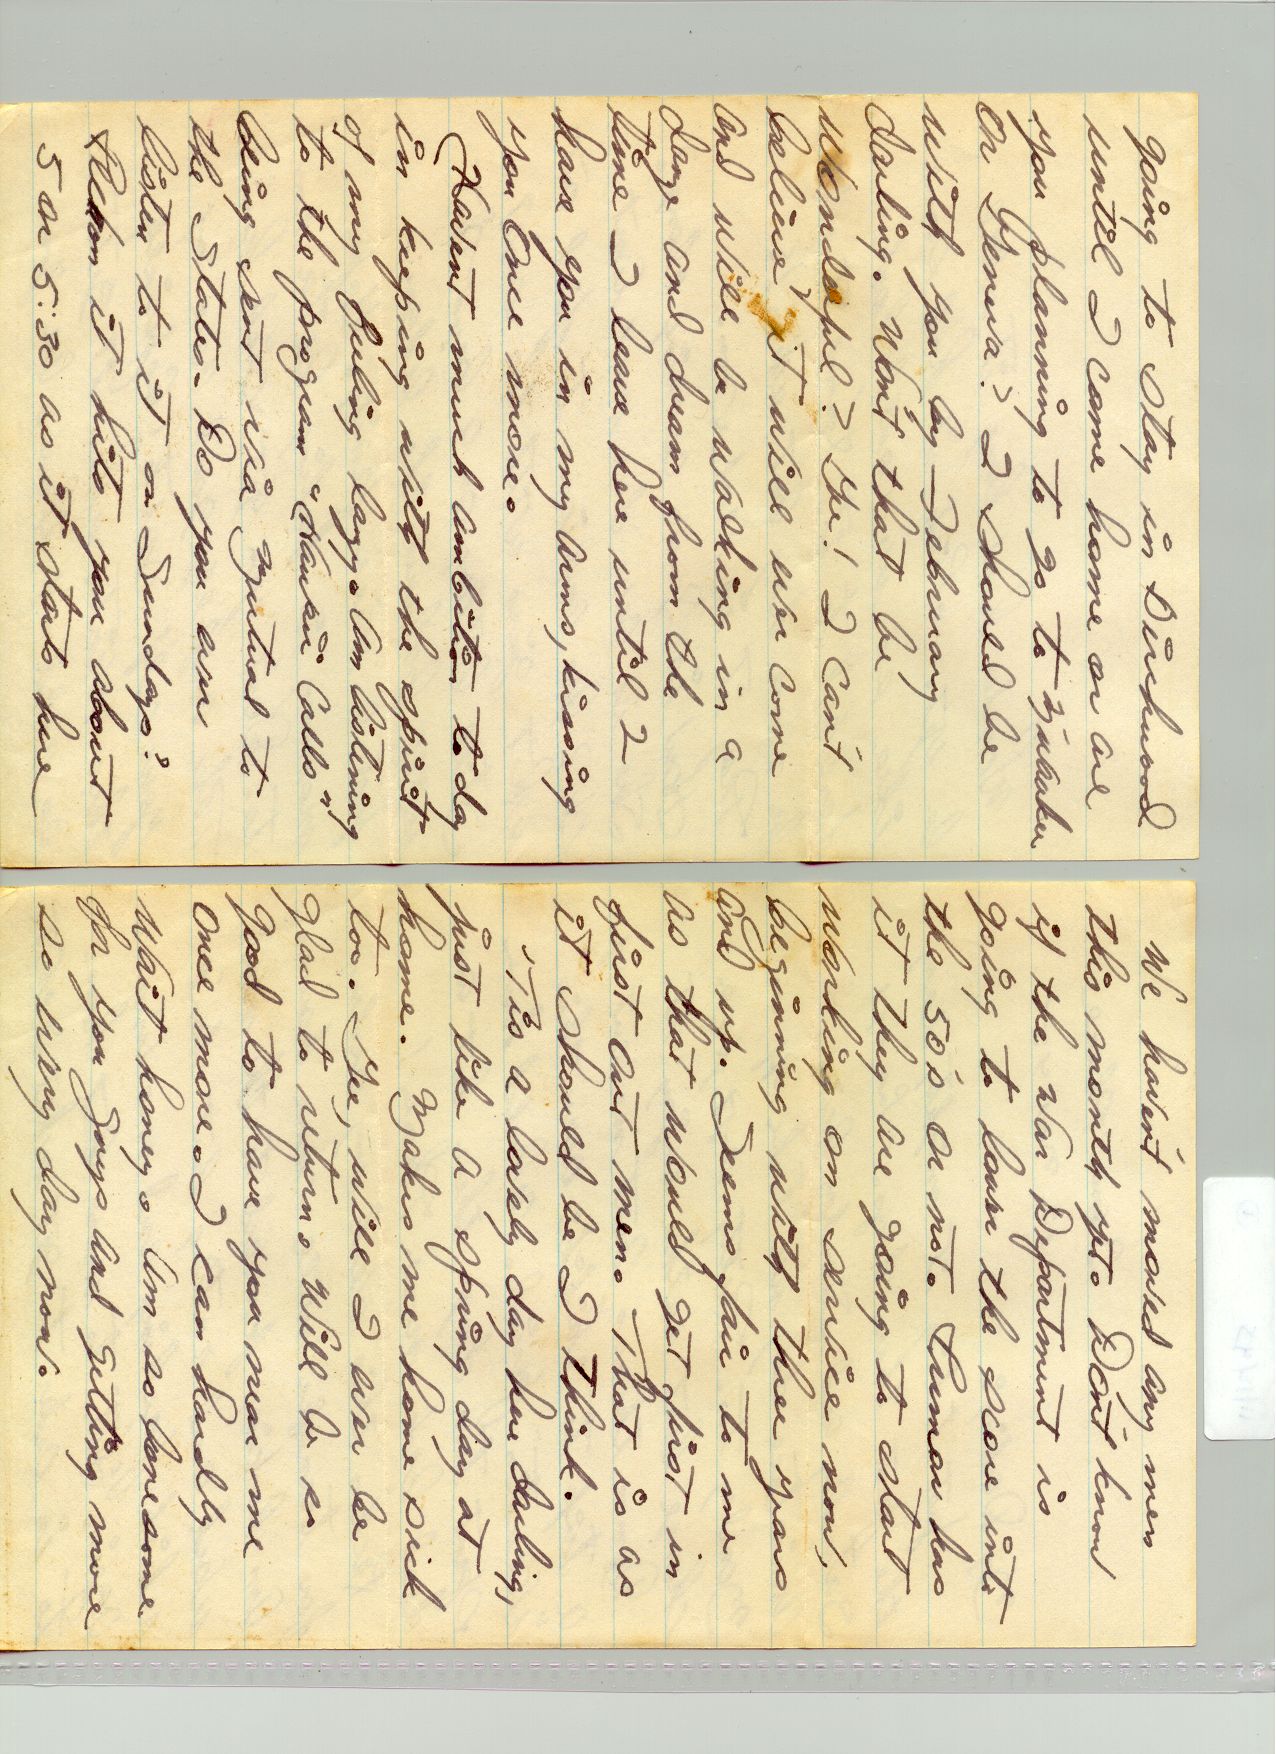 going to stay in Dinwood
until I come home or are
you planning to go to
or Geneva? I should be
with you by February
darling. Won't that be
wonderful? Gee! I can't
believe it will ever come
and will be walking in a
daze and dream from the
time I leave here until I
have you in my arms, kissing
you once more.
Haven't much ambition today
in keeping with the spirit
of my feeling lazy. Am listening
to the program "Hawaii Calls"
being sent via Mutual to
the States. Do you ever
listen to it on Sundays?
Reckon it hits you about
5 or 5:30 as it starts here
We haven't moved any men
this month yet. Don't know
if the War Department is
going to lower the score into
the 50's or not. Rumor has
it they are going to start
working on service now,
beginning with three years
and up. Seems fair to me
as that would get first in
first out men. That is as
it should be I think.
'Tis a lovely day here darling,
just like a spring day at
home. Makes me home sick
too. Gee, will I ever be
glad to return. Will be so
good to have you near me
once more. I can hardly
wait honey. Am so lonesome
for you guys and getting more
so every day now.